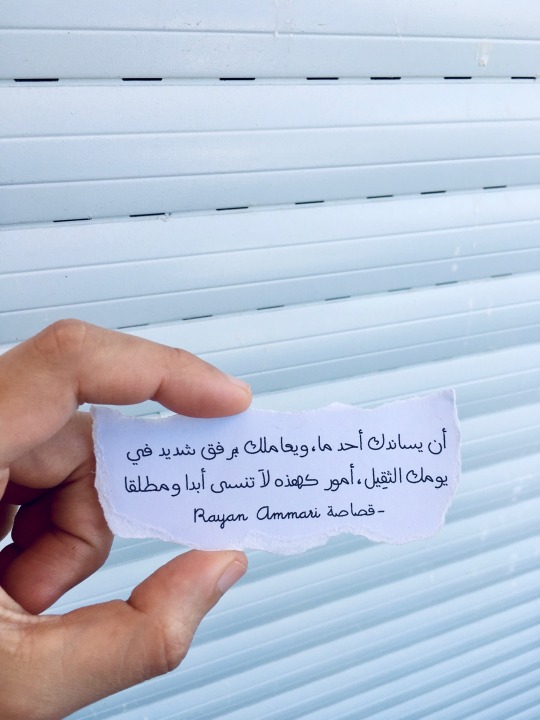 أن يساندك أحد ما، ويعاملك برفق شديد في
يومك الثقِيل، أمور كهذه لآ تنسى أبدا ومطلقا
-قصاصة Rayan Ammari